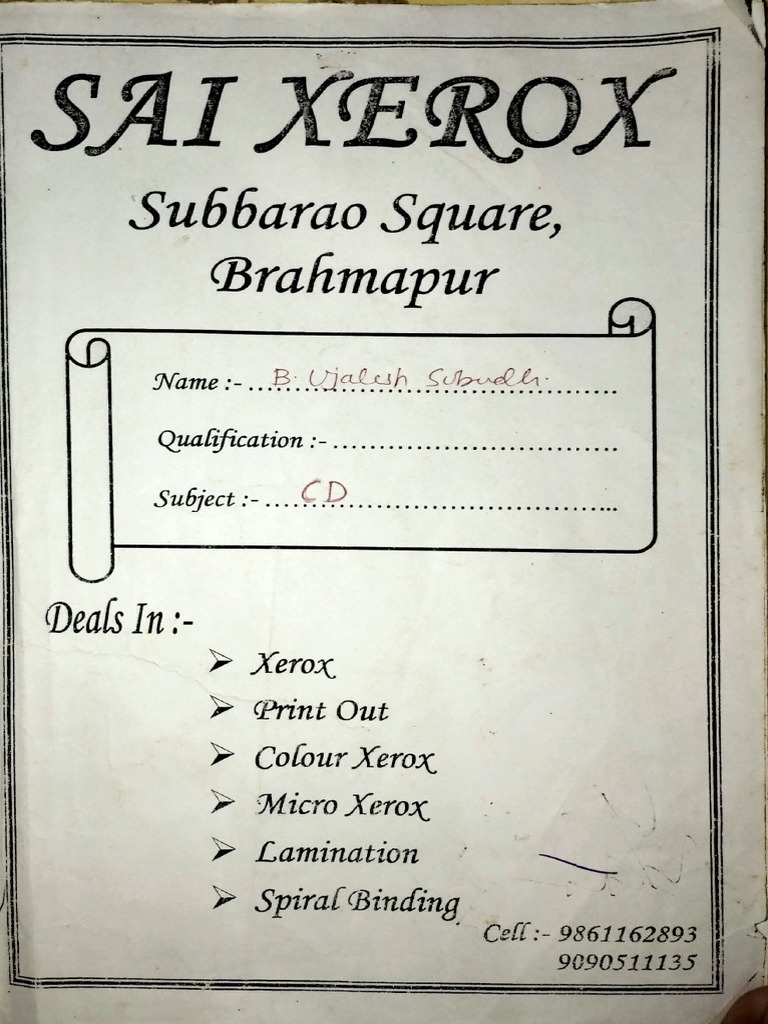 SAI XEROX
Subbarao Square,
Brahmapur
Name :- B. Ujalesh Subudhi
Qualification :-
Subject :- CD
Deals In :-
➢ Xerox
➢ Print Out
➢ Colour Xerox
➢ Micro Xerox
➢ Lamination
➢ Spiral Binding
Cell :- 9861162893
9090511135